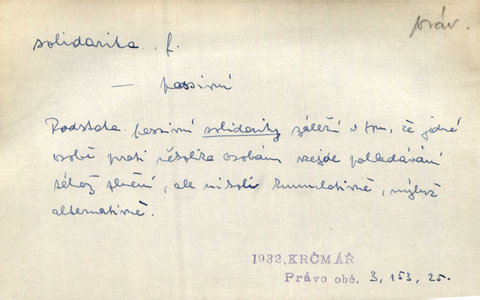 práv.
solidarita f.
— passivní
Podstata passivní solidarity záleží v tom, že jedné
osobě proti několika osobám vzejde pohledávání
téhož plnění, ale nikoli kumulativně, nýbrž
alternativně.
1932, KRČMÁŘ
Právo obč. 3, 153, 25.